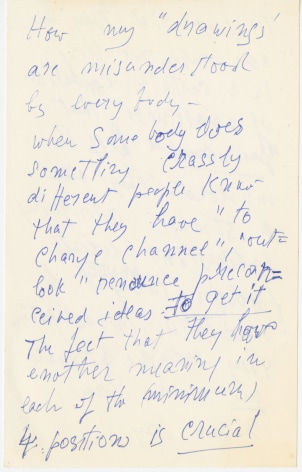 How my "drawings'
are misunderstood
by every body -
when Some body does
something crassly
different people know
that they have "to
change channel", "out=
look" renounce precon=
ceived ideas to get it
The fact that they have
another meaning in
each of the (minimum)
4. position is crucial